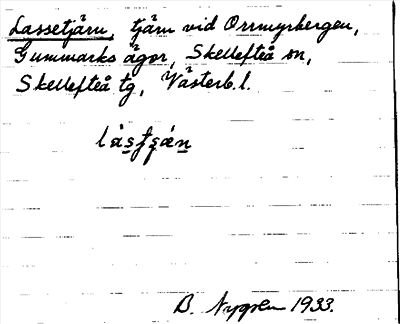 Lassetjärn, tjärn vid Orrmyrbergen,
Gummarks ägor, Skellefteå sn,
Skellefteå tg, Västerb. l.
B. 1933.